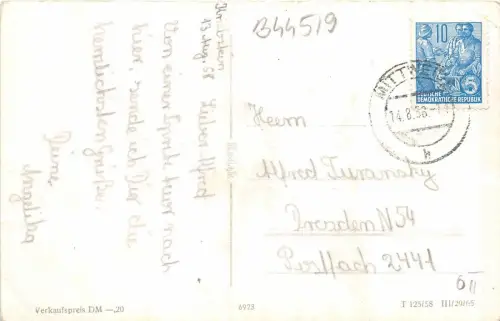 B44519
Kriebstein
13. Aug. 58
Lieber Alfred
Von einer Spritztour nach
hier, sende ich Dir die
herzlichsten Grüße.
Deine
Angelika
10
DEUTSCHE
DEMOKRATISCHE REPUBLIK
5
MITTWEIDA
14.8.58
b
Herrn
Alfred Turansky
Dresden N 54
Postfach 2441
Verkaufspreis DM —,20
6973
T 125/58 III/29/65